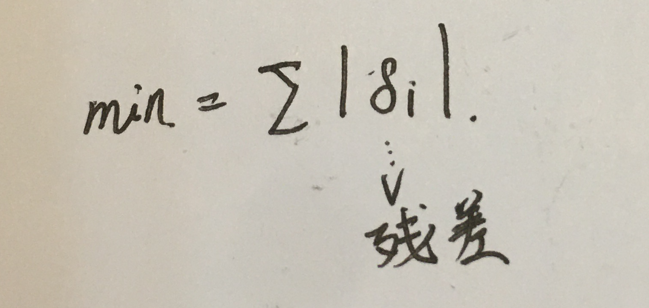 min = ∑ |δi|.
残差